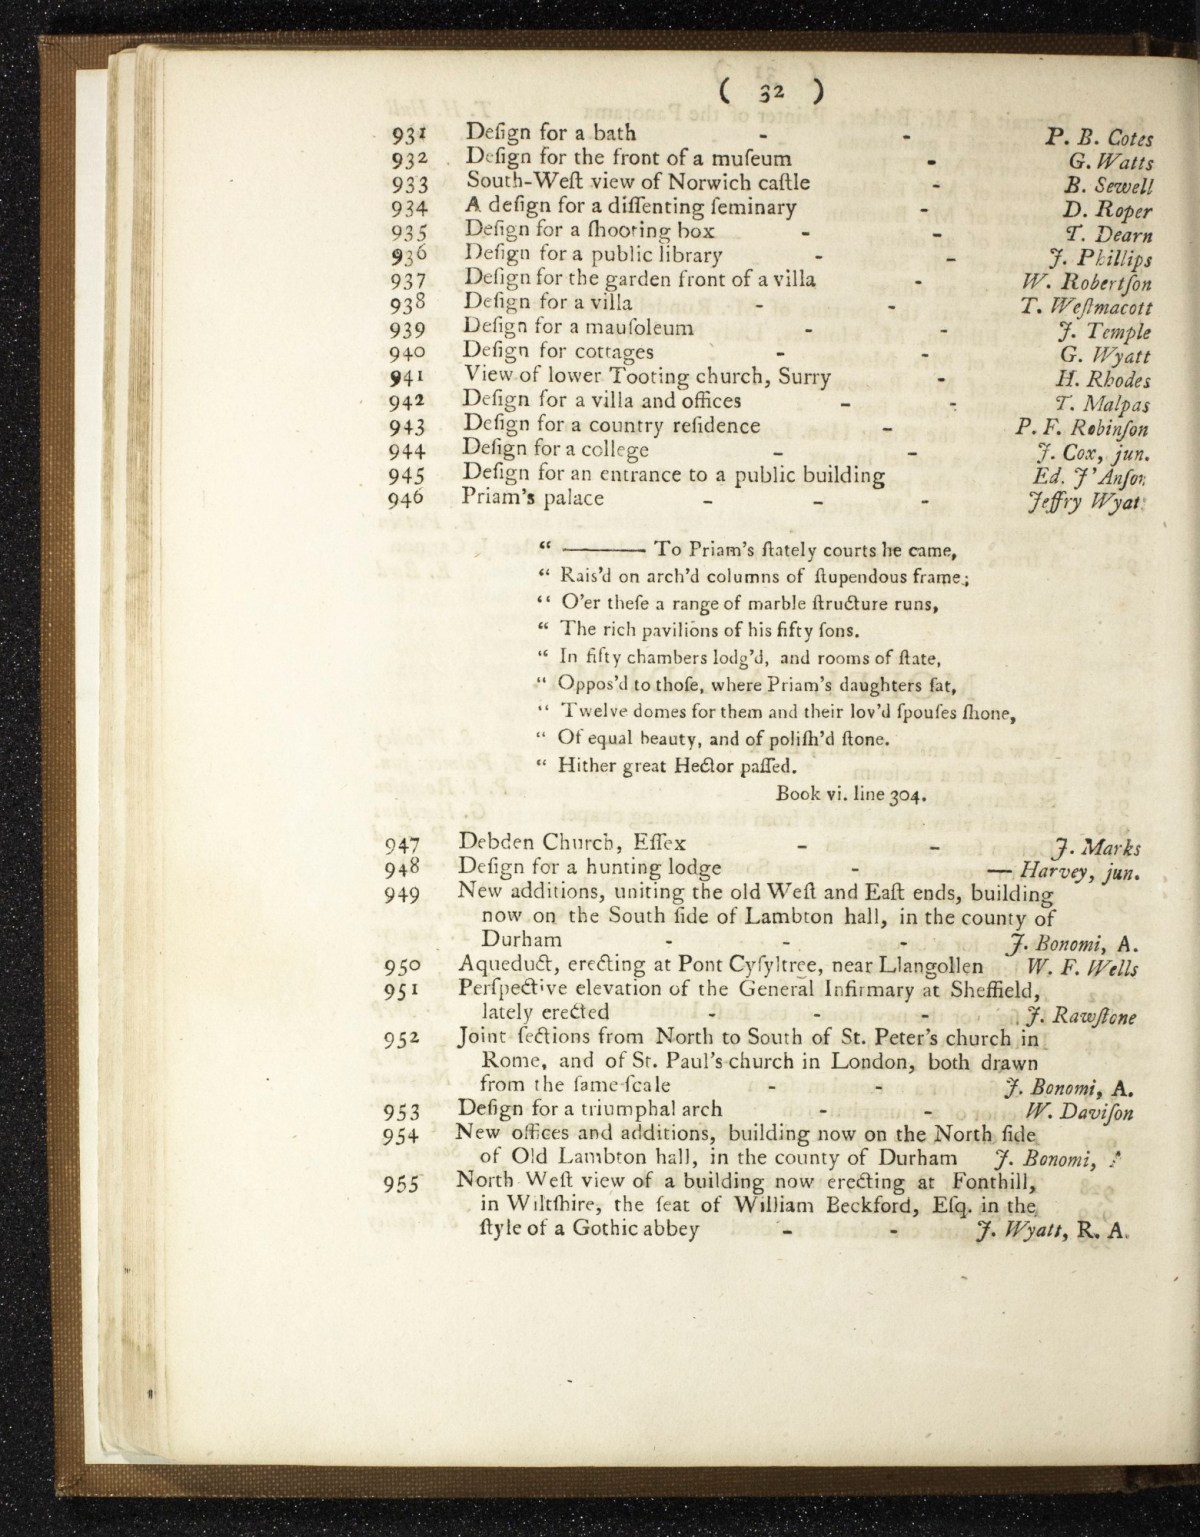 ( 32 )
931 Deſign for a bath - - P. B. Cotes
932 Deſign for the front of a muſeum - G. Watts
933 South-Weſt view of Norwich caſtle - B. Sewell
934 A deſign for a diſſenting ſeminary - D. Roper
935 Deſign for a ſhooting box - - T. Dearn
936 Deſign for a public library - - J. Phillips
937 Deſign for the garden front of a villa - W. Robertſon
938 Deſign for a villa - - T. Weſtmacott
939 Deſign for a mauſoleum - - J. Temple
940 Deſign for cottages - - G. Wyatt
941 View of lower Tooting church, Surry - H. Rhodes
942 Deſign for a villa and offices - - T. Malpas
943 Deſign for a country reſidence - P. F. Robinſon
944 Deſign for a college - - J. Cox, jun.
945 Deſign for an entrance to a public building Ed. J'Anſon
946 Priam's palace - - - Jeffry Wyat
“ ——— To Priam's ſtately courts he came,
“ Rais'd on arch'd columns of ſtupendous frame;
“ O'er theſe a range of marble ſtructure runs,
“ The rich pavilions of his fifty ſons.
“ In fifty chambers lodg'd, and rooms of ſtate,
“ Oppos'd to thoſe, where Priam's daughters ſat,
“ Twelve domes for them and their lov'd ſpouſes ſhone,
“ Of equal beauty, and of poliſh'd ſtone.
“ Hither great Hector paſſed.
Book vi. line 304.
947 Debden Church, Eſſex - - J. Marks
948 Deſign for a hunting lodge - — Harvey, jun.
949 New additions, uniting the old Weſt and Eaſt ends, building
now on the South ſide of Lambton hall, in the county of
Durham - - - J. Bonomi, A.
950 Aqueduct, erecting at Pont Cyſyltree, near Llangollen W. F. Wells
951 Perſpective elevation of the General Infirmary at Sheffield,
lately erected - - - J. Rawſtone
952 Joint ſections from North to South of St. Peter's church in
Rome, and of St. Paul's church in London, both drawn
from the ſame ſcale - - J. Bonomi, A.
953 Deſign for a triumphal arch - - W. Daviſon
954 New offices and additions, building now on the North ſide
of Old Lambton hall, in the county of Durham J. Bonomi, A
955 North Weſt view of a building now erecting at Fonthill,
in Wiltſhire, the ſeat of William Beckford, Eſq. in the
ſtyle of a Gothic abbey - - J. Wyatt, R. A.